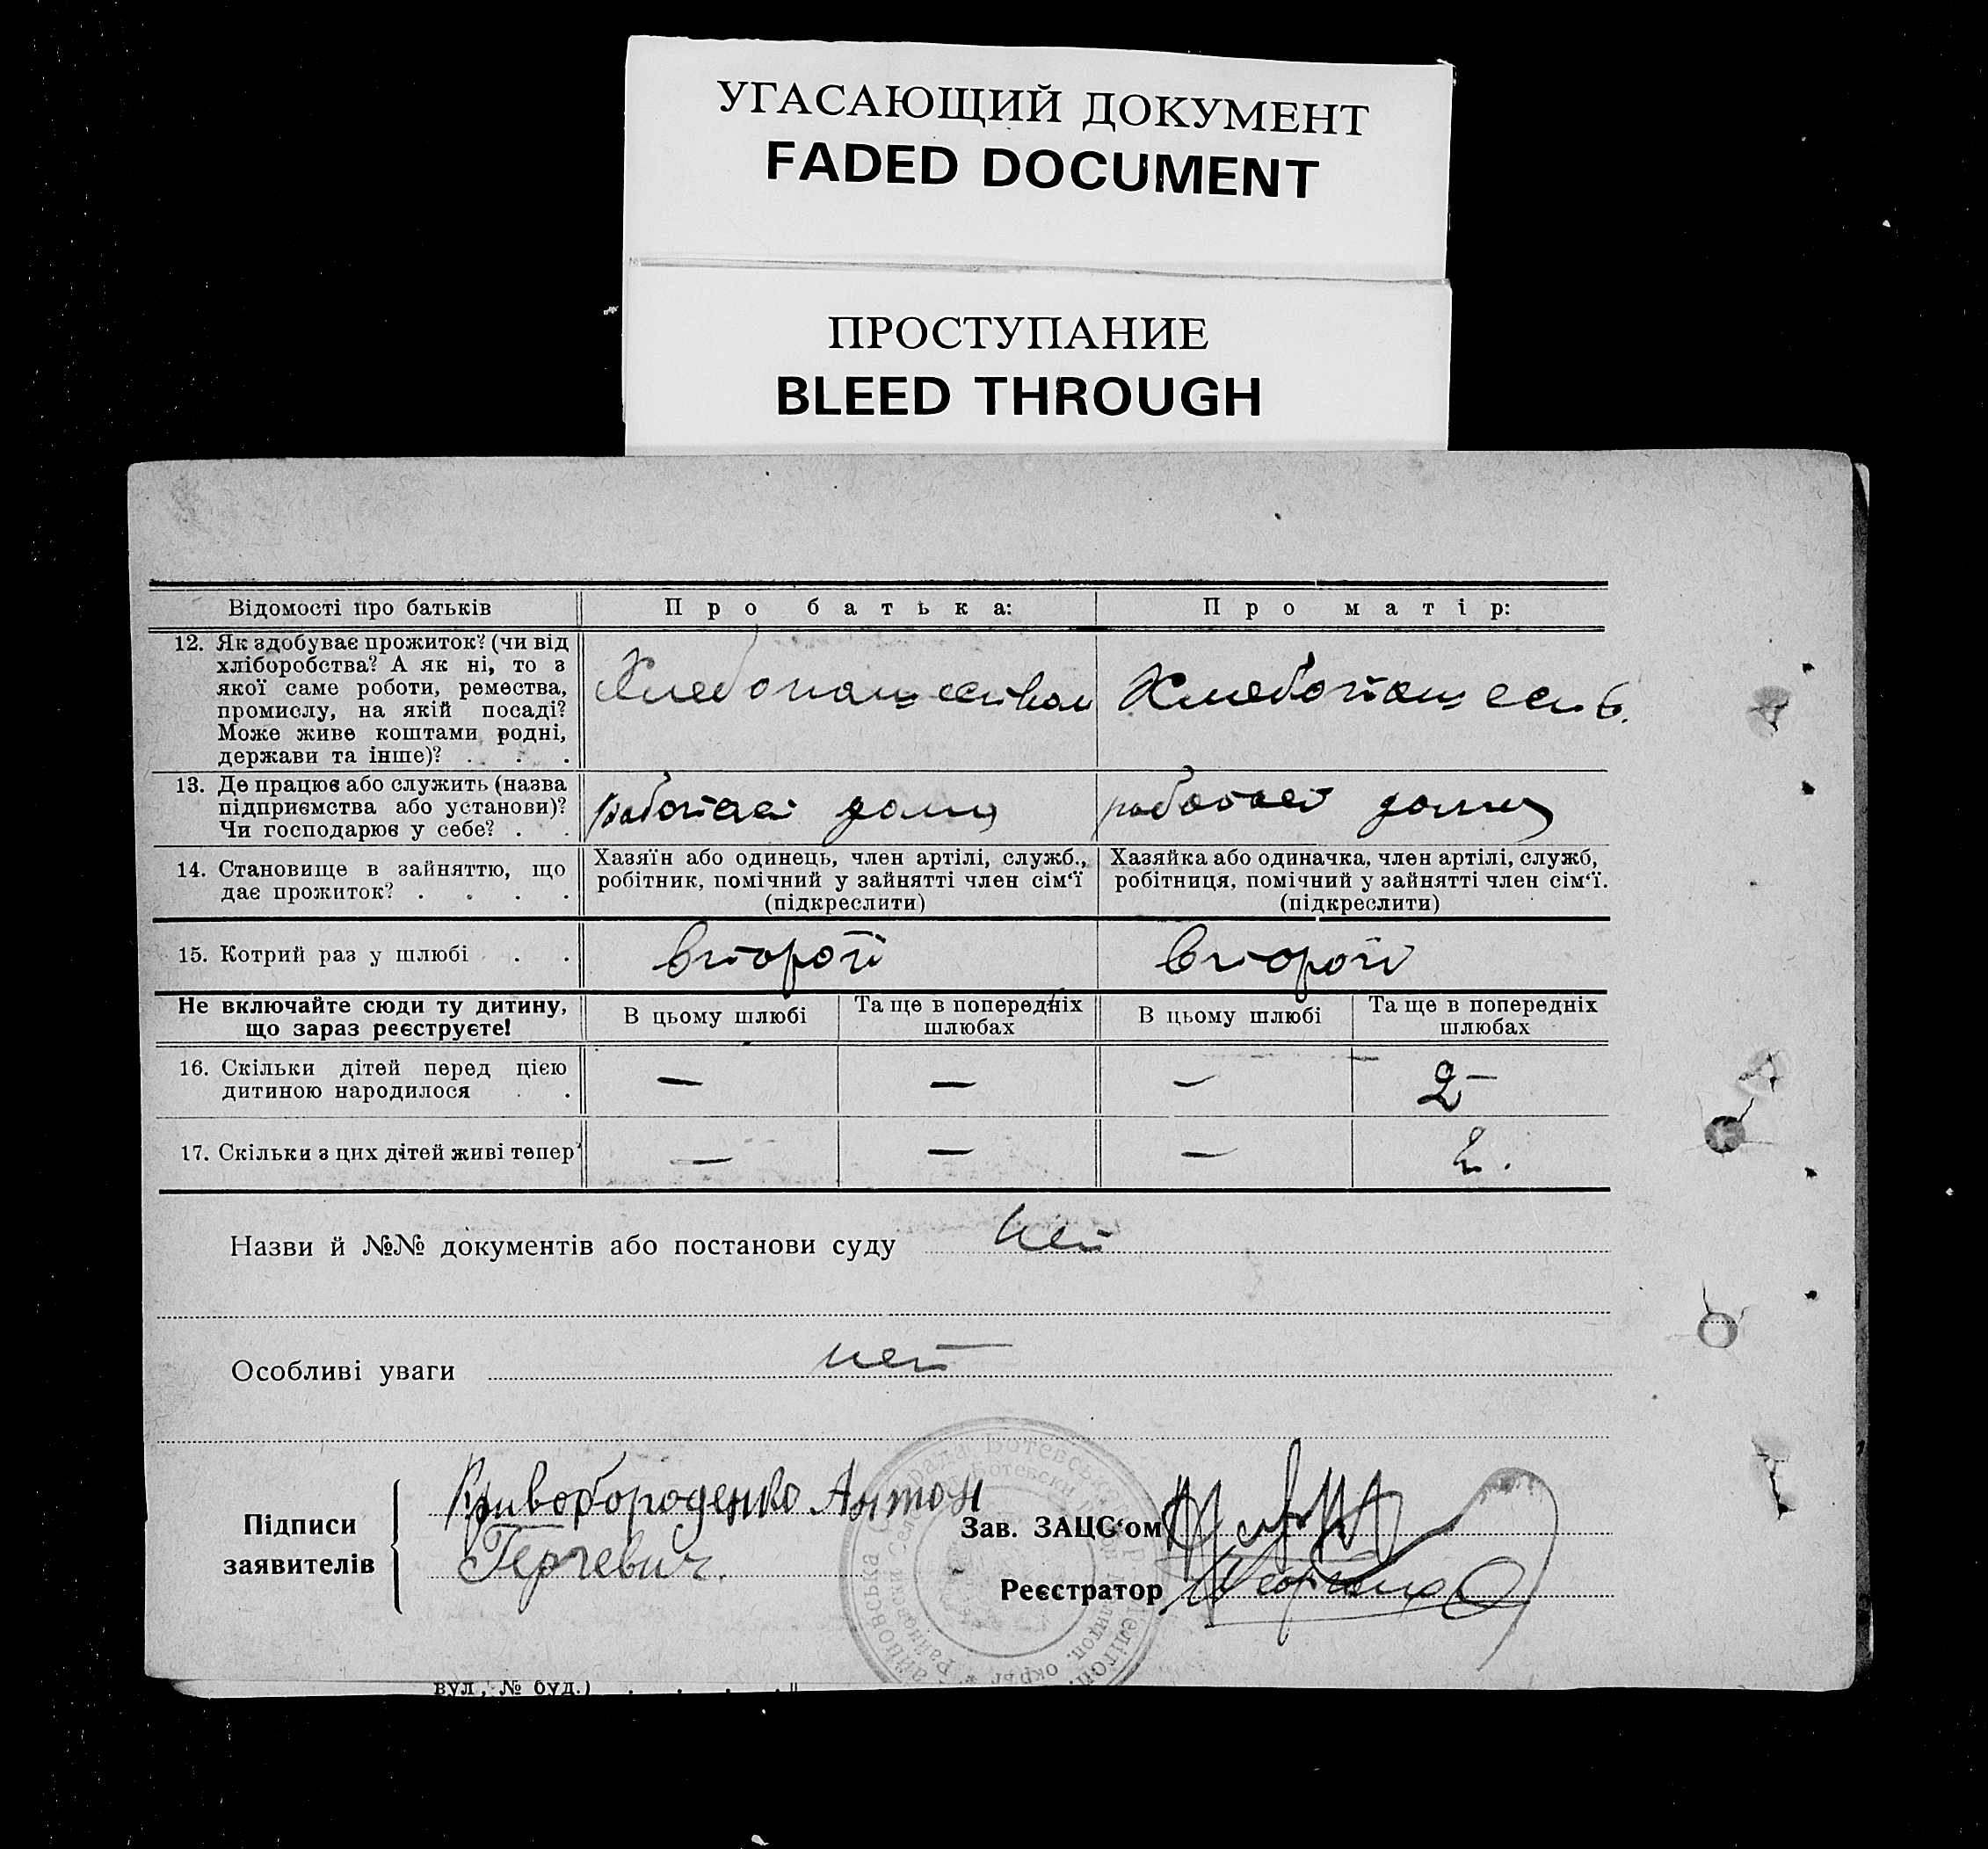 УГАСАЮЩИЙ ДОКУМЕНТ
FADED DOCUMENT
ПРОСТУПАНИЕ
BLEED THROUGH
Відомості про батьків
Про батька:
Про матір:
12. Як здобуває прожиток? (чи від
хліборобства? А як ні, то з
якої саме роботи, ремества,
промислу, на якій посаді?
Може живе коштами родні,
держави та інше)? . . .
Хлебопашеством
Хлебопашеств.
13. Де працює або служить (назва
підприємства або установи)?
Чи господарює у себе? . .
работает дома
работает дома
14. Становище в зайняттю, що
дає прожиток? . . . .
Хазяїн або одинець, член артілі, служб.,
робітник, помічний у зайнятті член сім'ї
(підкреслити)
Хазяйка або одиначка, член артілі, служб,
робітниця, помічний у зайнятті член сім'ї.
(підкреслити)
15. Котрий раз у шлюбі . .
второй
второй
Не включайте сюди ту дитину,
що зараз реєструєте!
В цьому шлюбі
Та ще в попередніх
шлюбах
В цьому шлюбі
Та ще в попередніх
шлюбах
16. Скільки дітей перед цією
дитиною народилося . .
— — — 2-
17. Скільки з цих дітей живі тепер?
— — — 2.
Назви й №№ документів або постанови суду нет
Особливі уваги нет
Підписи
заявителів
Кривобороденко Антон
Гергевич.
Зав. ЗАЦС'ом
Реєстратор
вул, № буд.) . . . .